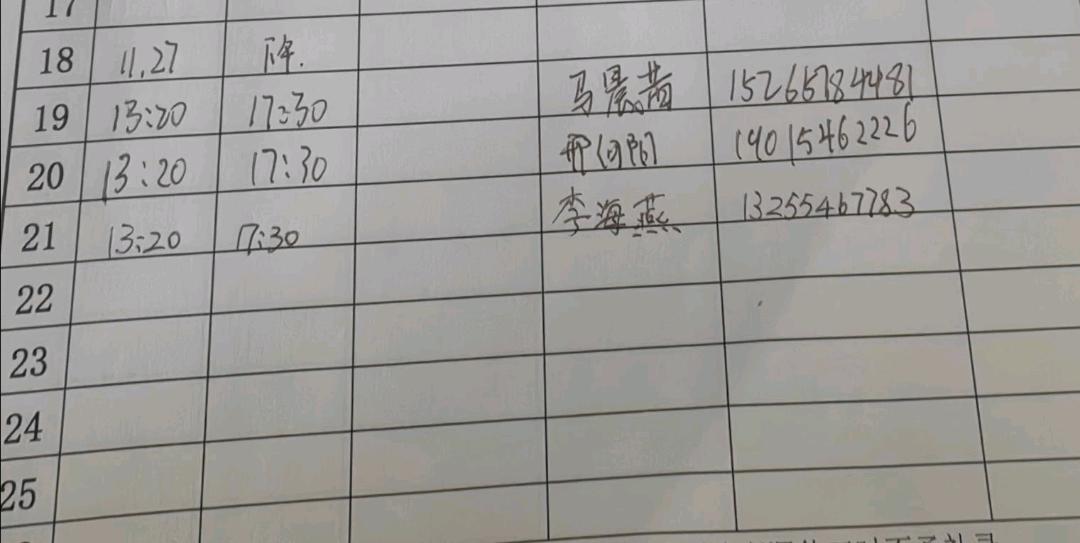 17
18 11.27 下午.
19 13:20 17:30 马晨茜 15265784481
20 13:20 17:30 邢 19015462226
21 13:20 17:30 李海燕 13255467783
22
23
24
25